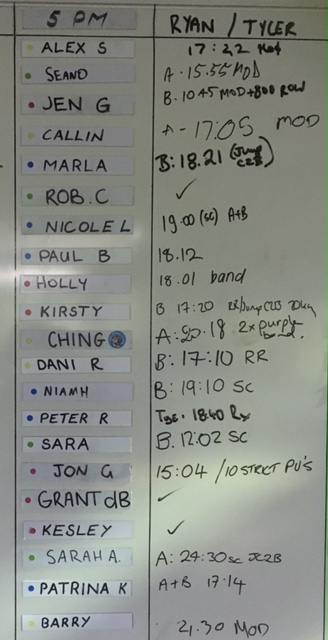 5 PM RYAN / TYLER
ALEX S 17:22
SEAND A - 15.55 MOD
JEN G B. 10 45 MOD + 800 ROW
CALLIN A - 17:05 MOD
MARLA B: 18.21 (Jump
ROB. C ✓
NICOLE L 19:00 (sc) A+B
PAUL B 18.12
HOLLY 18.01 band
KIRSTY B 17:20
CHING A: 20.18 2x purple band.
DANI R B: 17:10 RR
NIAMH B: 19:10 SC
PETER R 18:40 Rx
SARA B. 12:02 SC
JON G 15:04 /10 STRICT PU'S
GRANT dB ✓
KESLEY ✓
SARAH A. A: 24:30 sc
PATRINA K A+B 17:14
BARRY 21.30 MOD